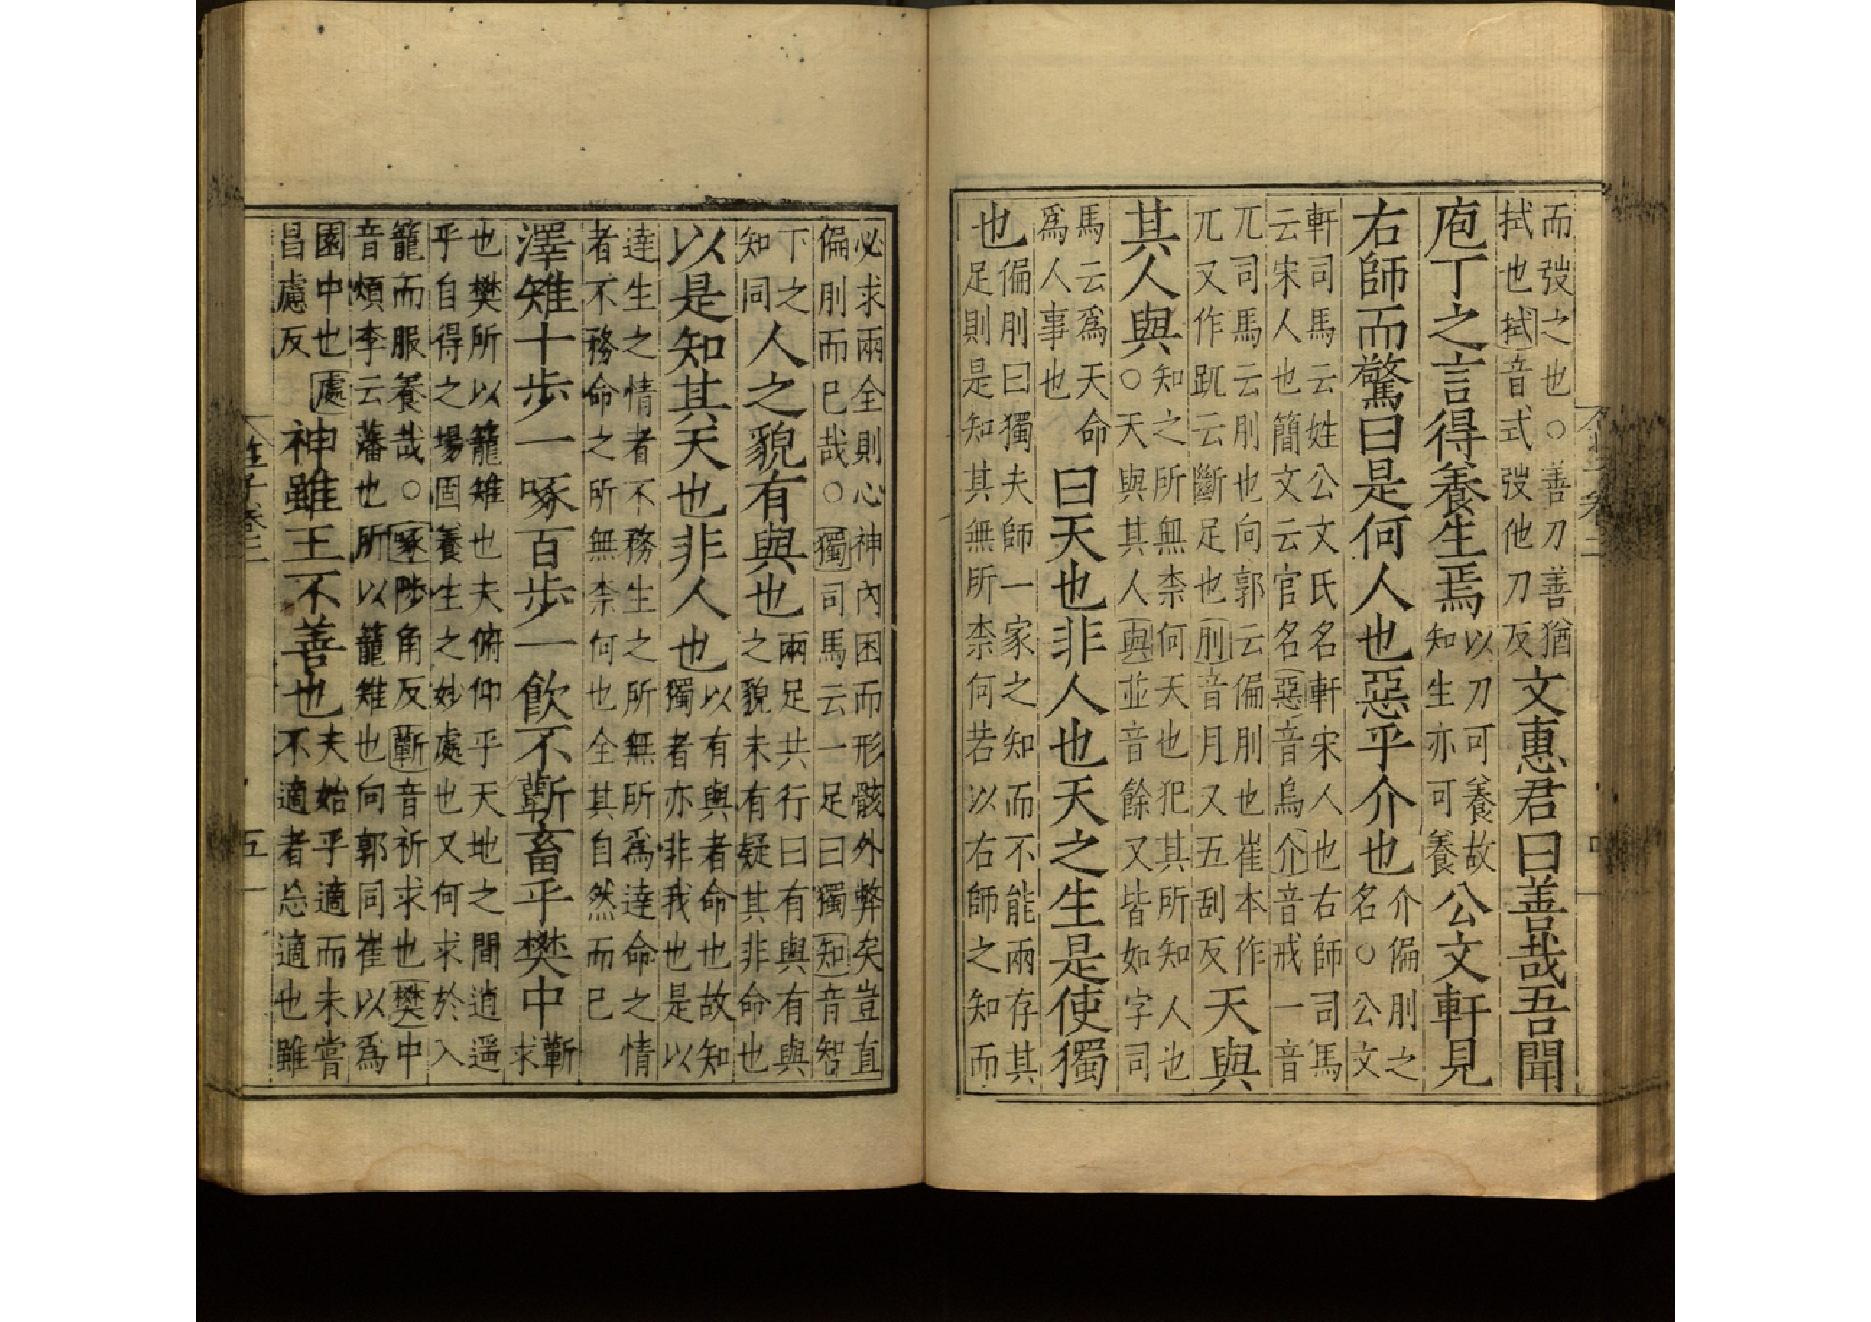 而弢之也○善刀善猶拭也拭音式弢他刀反文惠君曰善哉吾聞
庖丁之言得養生焉以刀可養故知生亦可養公文軒見
右師而驚曰是何人也惡乎介也介偏刖之名○公文
軒司馬云姓公文氏名軒宋人也右師司馬云宋人也簡文云官名惡音烏介音戒一音
兀司馬云刖也向郭云偏刖也崔本作兀又作𧿁云斷足也刖音月又五刮反天與
其人與知之所無柰何天也犯其所知人也○天與其人與並音餘又皆如字司
馬云爲天命爲人事也曰天也非人也天之生是使獨
也偏刖曰獨夫師一家之知而不能兩存其足則是知其無所柰何若以右師之知而
必求兩全則心神內困而形骸外弊矣豈直偏刖而已哉○獨司馬云一足曰獨知音智
下之知同人之貌有與也兩足共行曰有與有與之貌未有疑其非命也
以是知其天也非人也以有與者命也故知獨者亦非我也是以
達生之情者不務生之所無所爲達命之情者不務命之所無柰何也全其自然而已
澤雉十步一啄百步一飲不蘄畜乎樊中蘄求
也樊所以籠雉也夫俯仰乎天地之間逍遥乎自得之場固養生之妙處也又何求於入
籠而服養哉○啄陟角反蘄音祈求也樊中音煩李云藩也所以籠雉也向郭同崔以爲
園中也處昌慮反神雖王不善也夫始乎適而未嘗不適者忘適也雖
莊子卷三
五